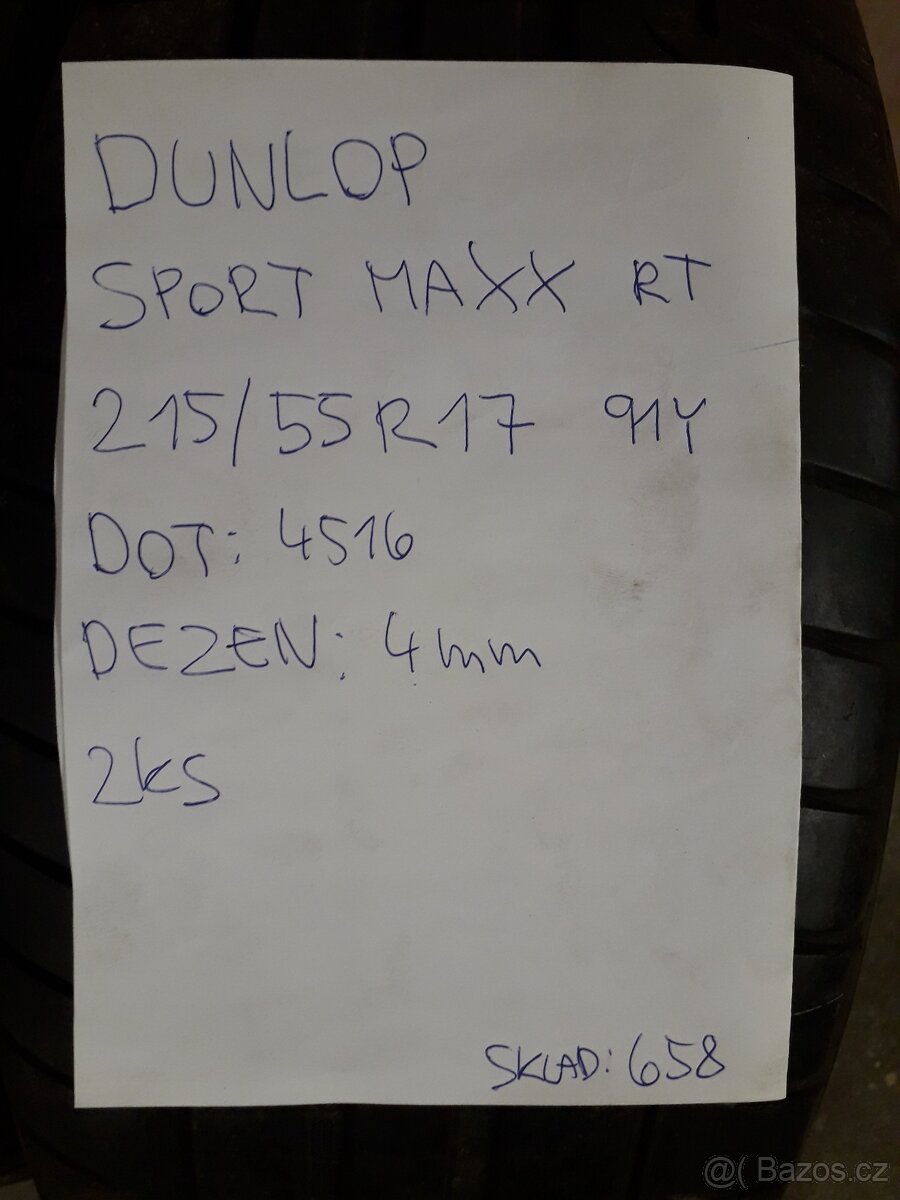 DUNLOP
SPORT MAXX RT
215/55R17 91Y
DOT: 4516
DEZEN: 4mm
2ks
SKLAD: 658
@( Bazos.cz